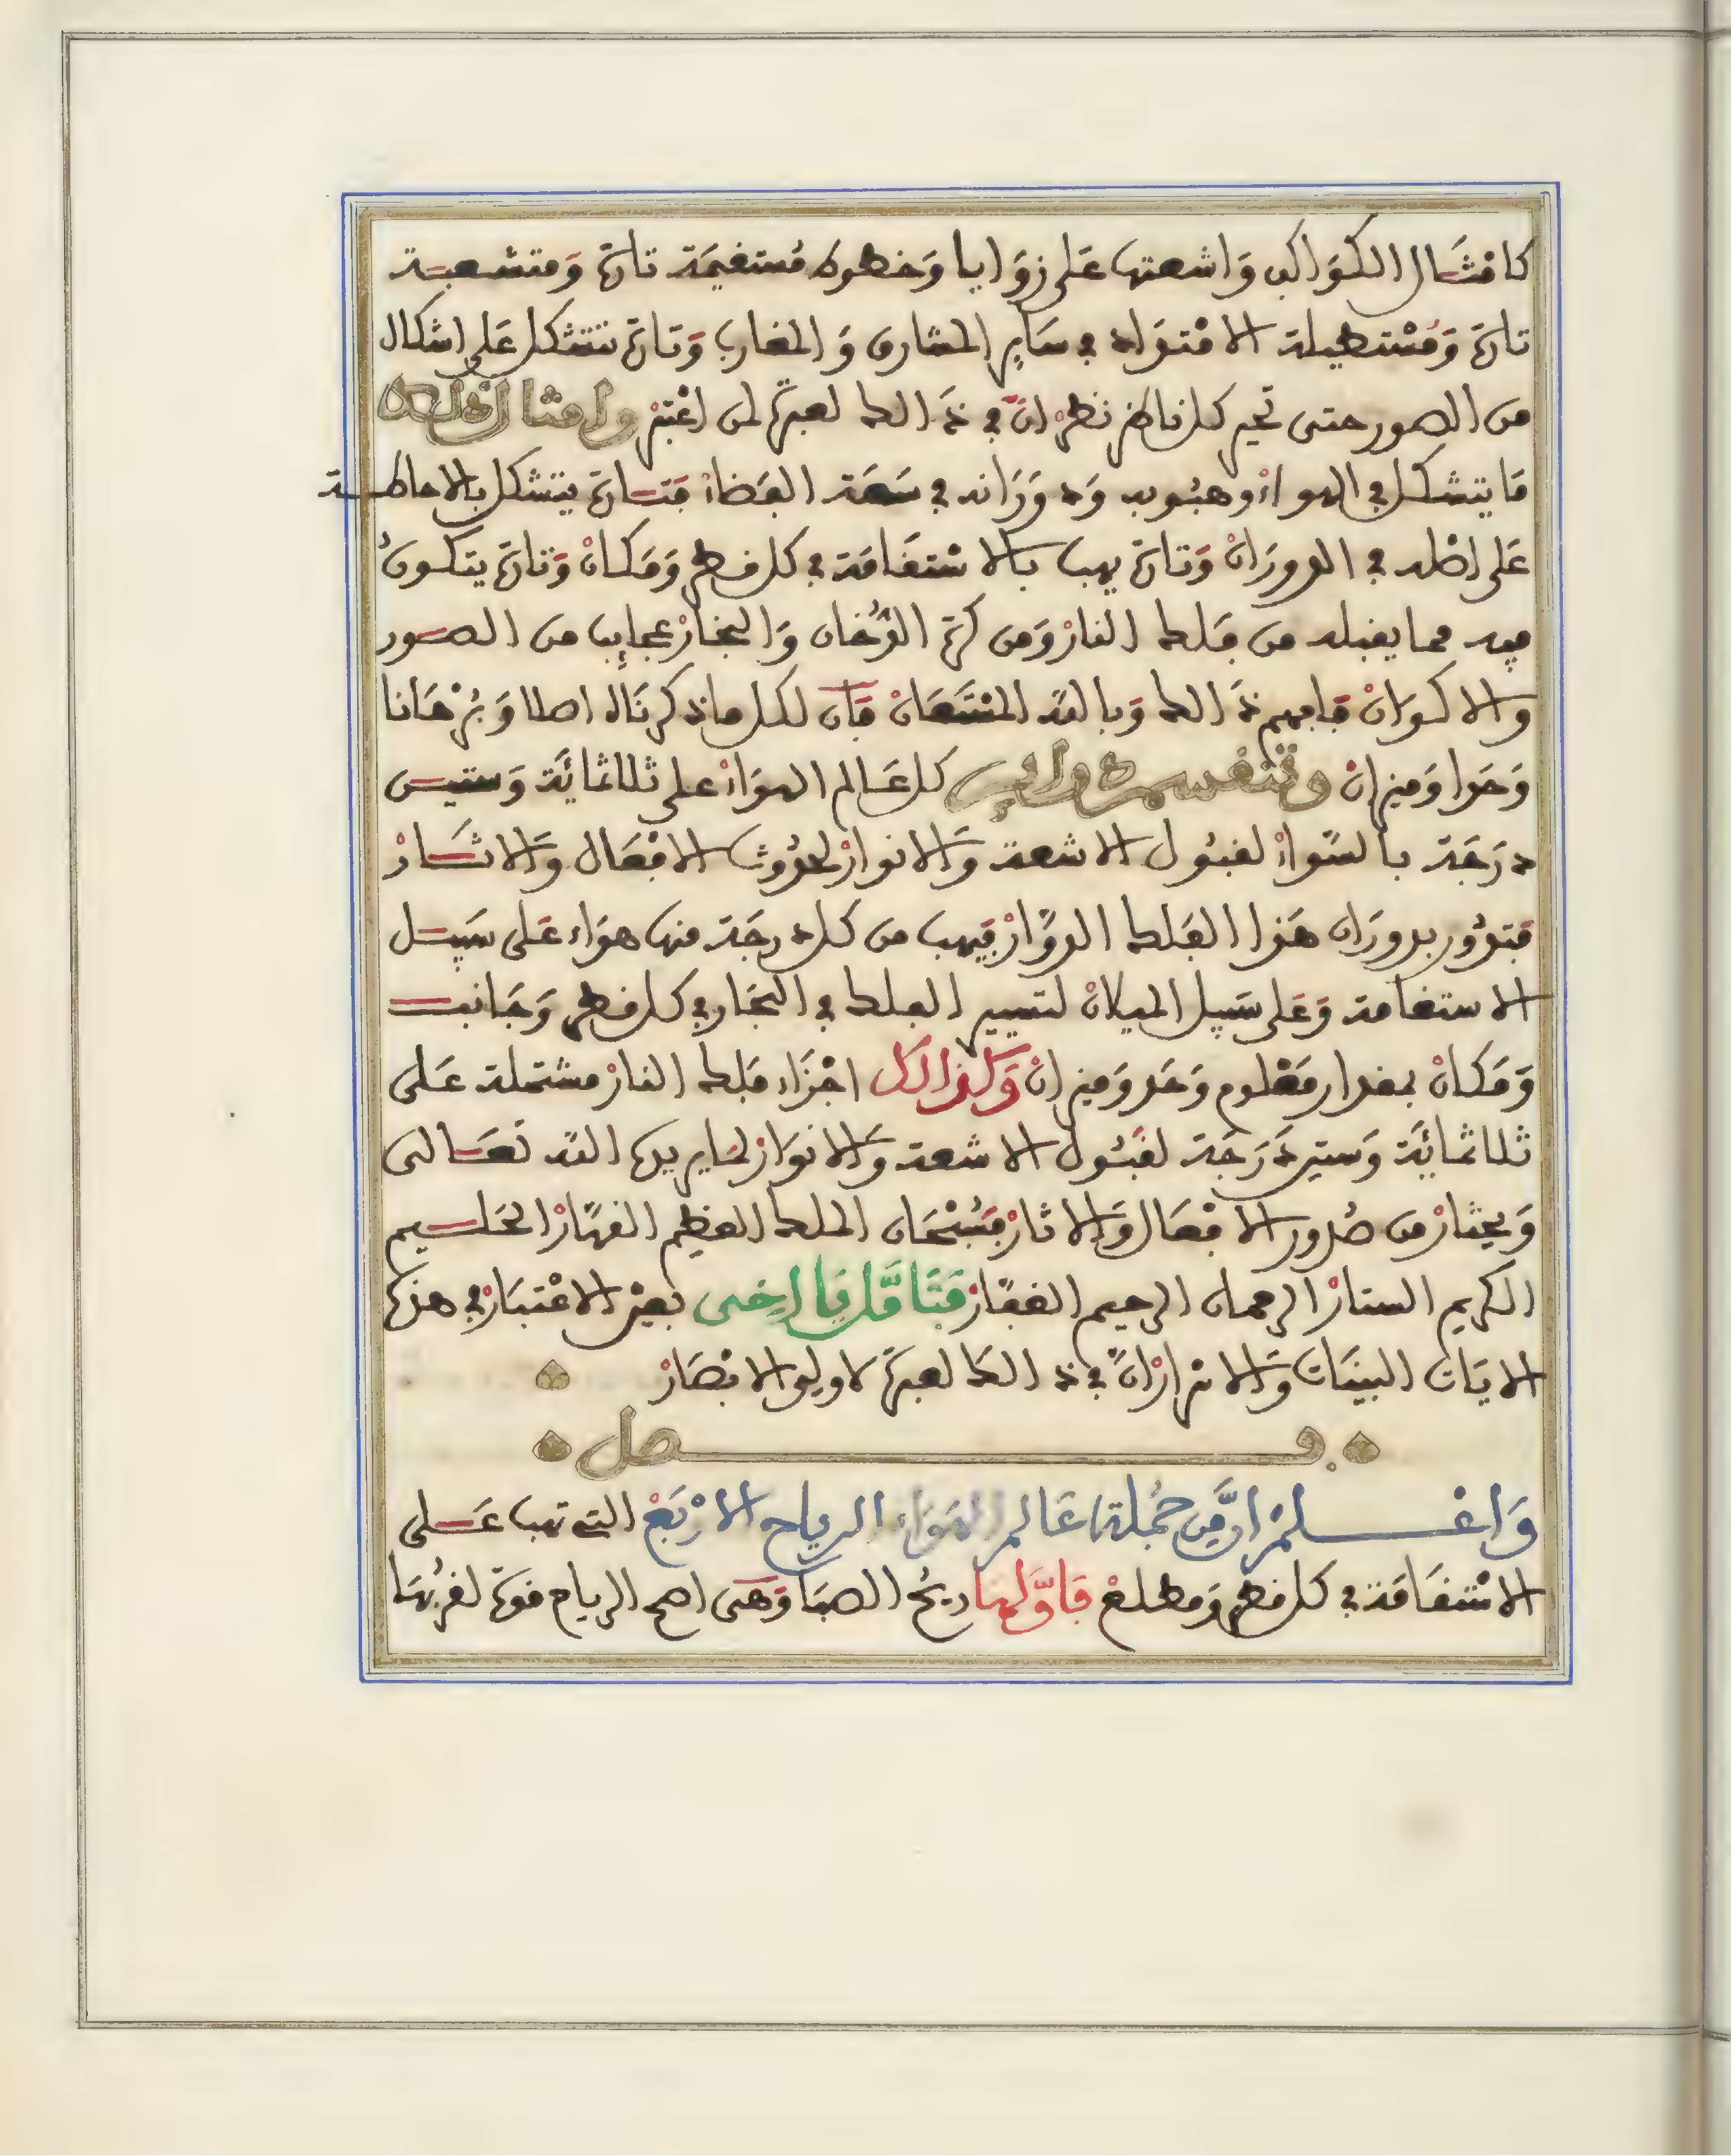 كامثال الكواكب واشعتها على زوايا وخطوط مستقيمة تارة ومتشعبة
تارة ومستطيلة الامتداد في ساير المشارق والمغارب وتارة تتشكل على اشكال
من الصور حتى تحير كل ناظر نظر ان في ذالك لعبرة لمن اعتبر وامثال ذلك
ما يتشكل في الهواء وهبوبه ودورانه في سعة الفضاء فتارة يتشكل بالاحاطة
على اصله في الدوران وتارة يهب بالاستقامة في كل قطر ومكان وتارة يتكون
فيه مما يقبله من فلك النار ومن كرة الدخان والبخار عجايب من الصور
والاكوان فافهم ذالك وبالله المستعان فان لكل ما ذكرناه اصلا وبرهانا
وحدا وميزان وتنقسم كل عالم الهواء على ثلاثماية وستين
درجة بالسواء لقبول الاشعة والانوار لحدوث الافعال والاثار
فتدور بدوران هذا الفلك الدوار فيهب من كل درجة منها هواء على سبيل
الاستقامة وعلى سبيل الميلان لتسيير الفلك في البحار في كل قطر وجانب
ومكان بمقدار معلوم وحد وميزان وكذالك اجزاء فلك النار مشتملة على
ثلاثماية وستين درجة لقبول الاشعة والانوار لما يريده الله تعالى
ويختار من صدور الافعال والاثار فسبحان الملك العظيم القهار الحليم
الكريم الستار الرحمان الرحيم الغفار فتامل يا اخي بعين الاعتبار في هذه
الايات البينات والاسرار ان في ذالك لعبرة لاولي الابصار
فصل
واعلم ان من جملة عالم الهواء الرياح الاربع التي تهب على
الاستقامة في كل قطر ومطلع فاولها ريح الصبا وهي اصح الرياح قوة لقربها